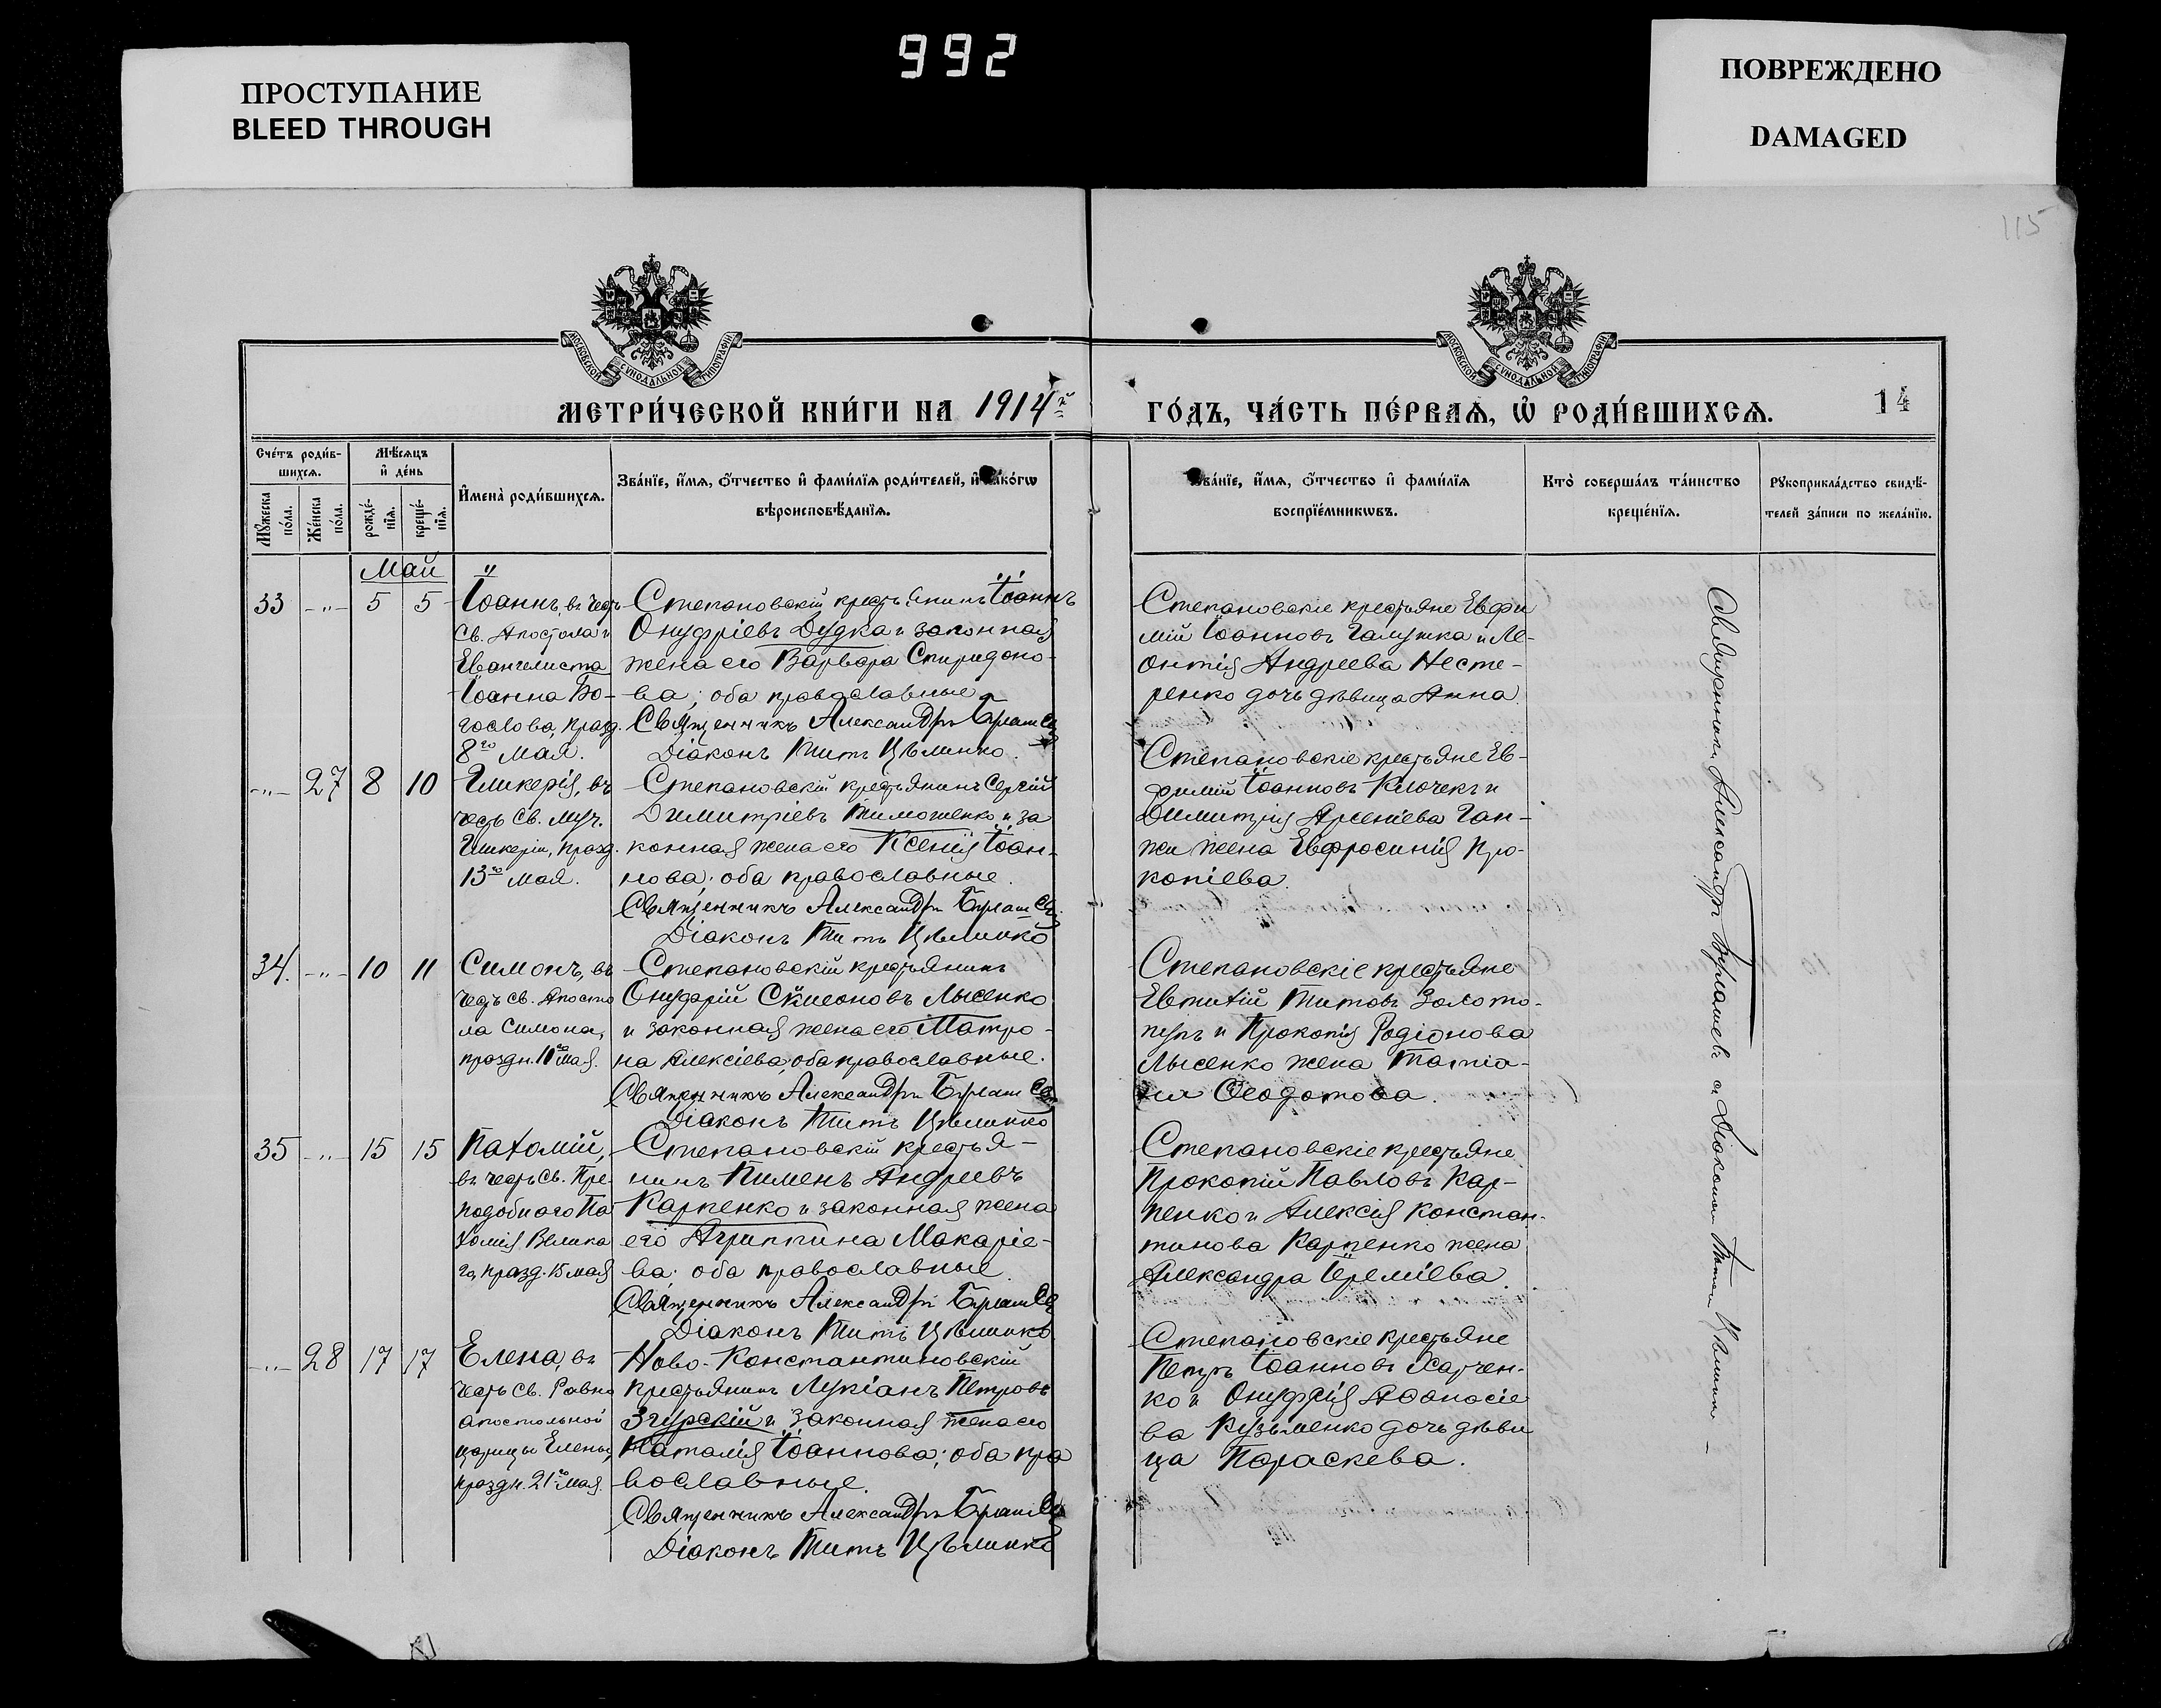 992
ПРОСТУПАНИЕ
BLEED THROUGH
ПОВРЕЖДЕНО
DAMAGED
115
МОСКОВСКОЙ СУНОДАЛЬНОЙ ТИПОГРАФІИ
МОСКОВСКОЙ СУНОДАЛЬНОЙ ТИПОГРАФІИ
МЕТРИ́ЧЕСКОЙ КНИ́ГИ НА 1914й
ГО́ДЪ, ЧА́СТЬ ПЕ́РВАѦ, Ѡ҆ РОДИ́ВШИХСѦ.
14
Сче́тъ роди́в-
шихсѧ.
Мѣ́сѧцъ
и҆ де́нь
Мꙋ́жеска
по́ла.
Же́нска
по́ла.
рожде́-
нїѧ.
креще́-
нїѧ.
И҆мена̀ роди́вшихсѧ.
Зва́нїе, и҆́мѧ, ѻ҆́тчество и҆ фами́лїѧ роди́телей, и҆ како́гѡ
вѣроисповѣ́данїѧ.
Зва́нїе, и҆́мѧ, ѻ҆́тчество и҆ фами́лїѧ
воспрїе́мникѡвъ.
Кто̀ соверша́лъ та́инство
креще́нїѧ.
Рꙋкоприкла́дство свидѣ́-
телей за́писи по жела́нїю.
Май
33 -"- 5 5
Іоаннъ, въ честь
Св. Апостола и
Евангелиста
Іоанна Бо-
гослова, празд.
8го мая.
Степановскій крестьянинъ Іоаннъ
Онуфріевъ Дудка и законная
жена его Варвара Спиридоно-
ва; оба православные
Священникъ Александръ
Діаконъ Титъ Цѣлинко.
Степановскіе крестьяне Евфи
мій Іоанновъ Галушка и Ле-
онтія Андреева Несте-
ренко дочь дѣвица Анна
-"- 27 8 10
Гликерія, въ
честь Св. муч.
Гликеріи, празд.
13го мая.
Степановскій крестьянинъ Сергій
Димитріевъ Тимошенко и за
конная жена его Ксенія Іоан-
нова; оба православные.
Священникъ Александръ
Діаконъ Титъ Цѣлинко
Степановскіе крестьяне Ев-
фимій Іоанновъ Клочекъ и
Димитрія Арсеніева Ган-
жи жена Евфросинія Про-
копіева.
34. -"- 10 11
Симонъ, въ
честь св. Апосто
ла Симона,
праздн. 10го мая.
Степановскій крестьянинъ
Онуфрій Симеоновъ Лысенко
и законная жена его Матро-
на Алексіева, оба православные.
Священникъ Александръ
Діаконъ Титъ Цѣлинко
Степановскіе крестьяне
Евтихій Титовъ Золото-
пупъ и Прокопія Родіонова
Лысенко жена Татіа-
на Ѳеодотова.
35 -"- 15 15
Пахомій,
въ честь Св. Пре-
подобнаго Па
хомія Велика
го, празд. 15 мая
Степановскій крестья-
нинъ Пименъ Андреевъ
Карпенко и законная жена
его Агриппина Макаріе-
ва; оба православные.
Священникъ Александръ
Діаконъ Титъ Цѣлинко
Степановскіе крестьяне
Прокопій Павловъ Кар-
пенко и Алексія Констан-
тинова Карпенко жена
Александра Іереміева.
-"- 28 17 17
Елена, въ
честь Св. Равно
апостольной
царицы Елены,
праздн. 21го мая.
Ново-Константиновскій
крестьянинъ Лукіанъ Петровъ
Згурскій и законная жена его
Наталія Іоаннова; оба пра
вославные.
Священникъ Александръ
Діаконъ Титъ Цѣлинко
Степановскіе крестьяне
Петръ Іоанновъ Харчен-
ко и Онуфрія Аѳанасіе
ва Кузьменко дочь дѣви
ца Параскева.
Священникъ Александръ
съ Діакономъ Титомъ Цѣлинко